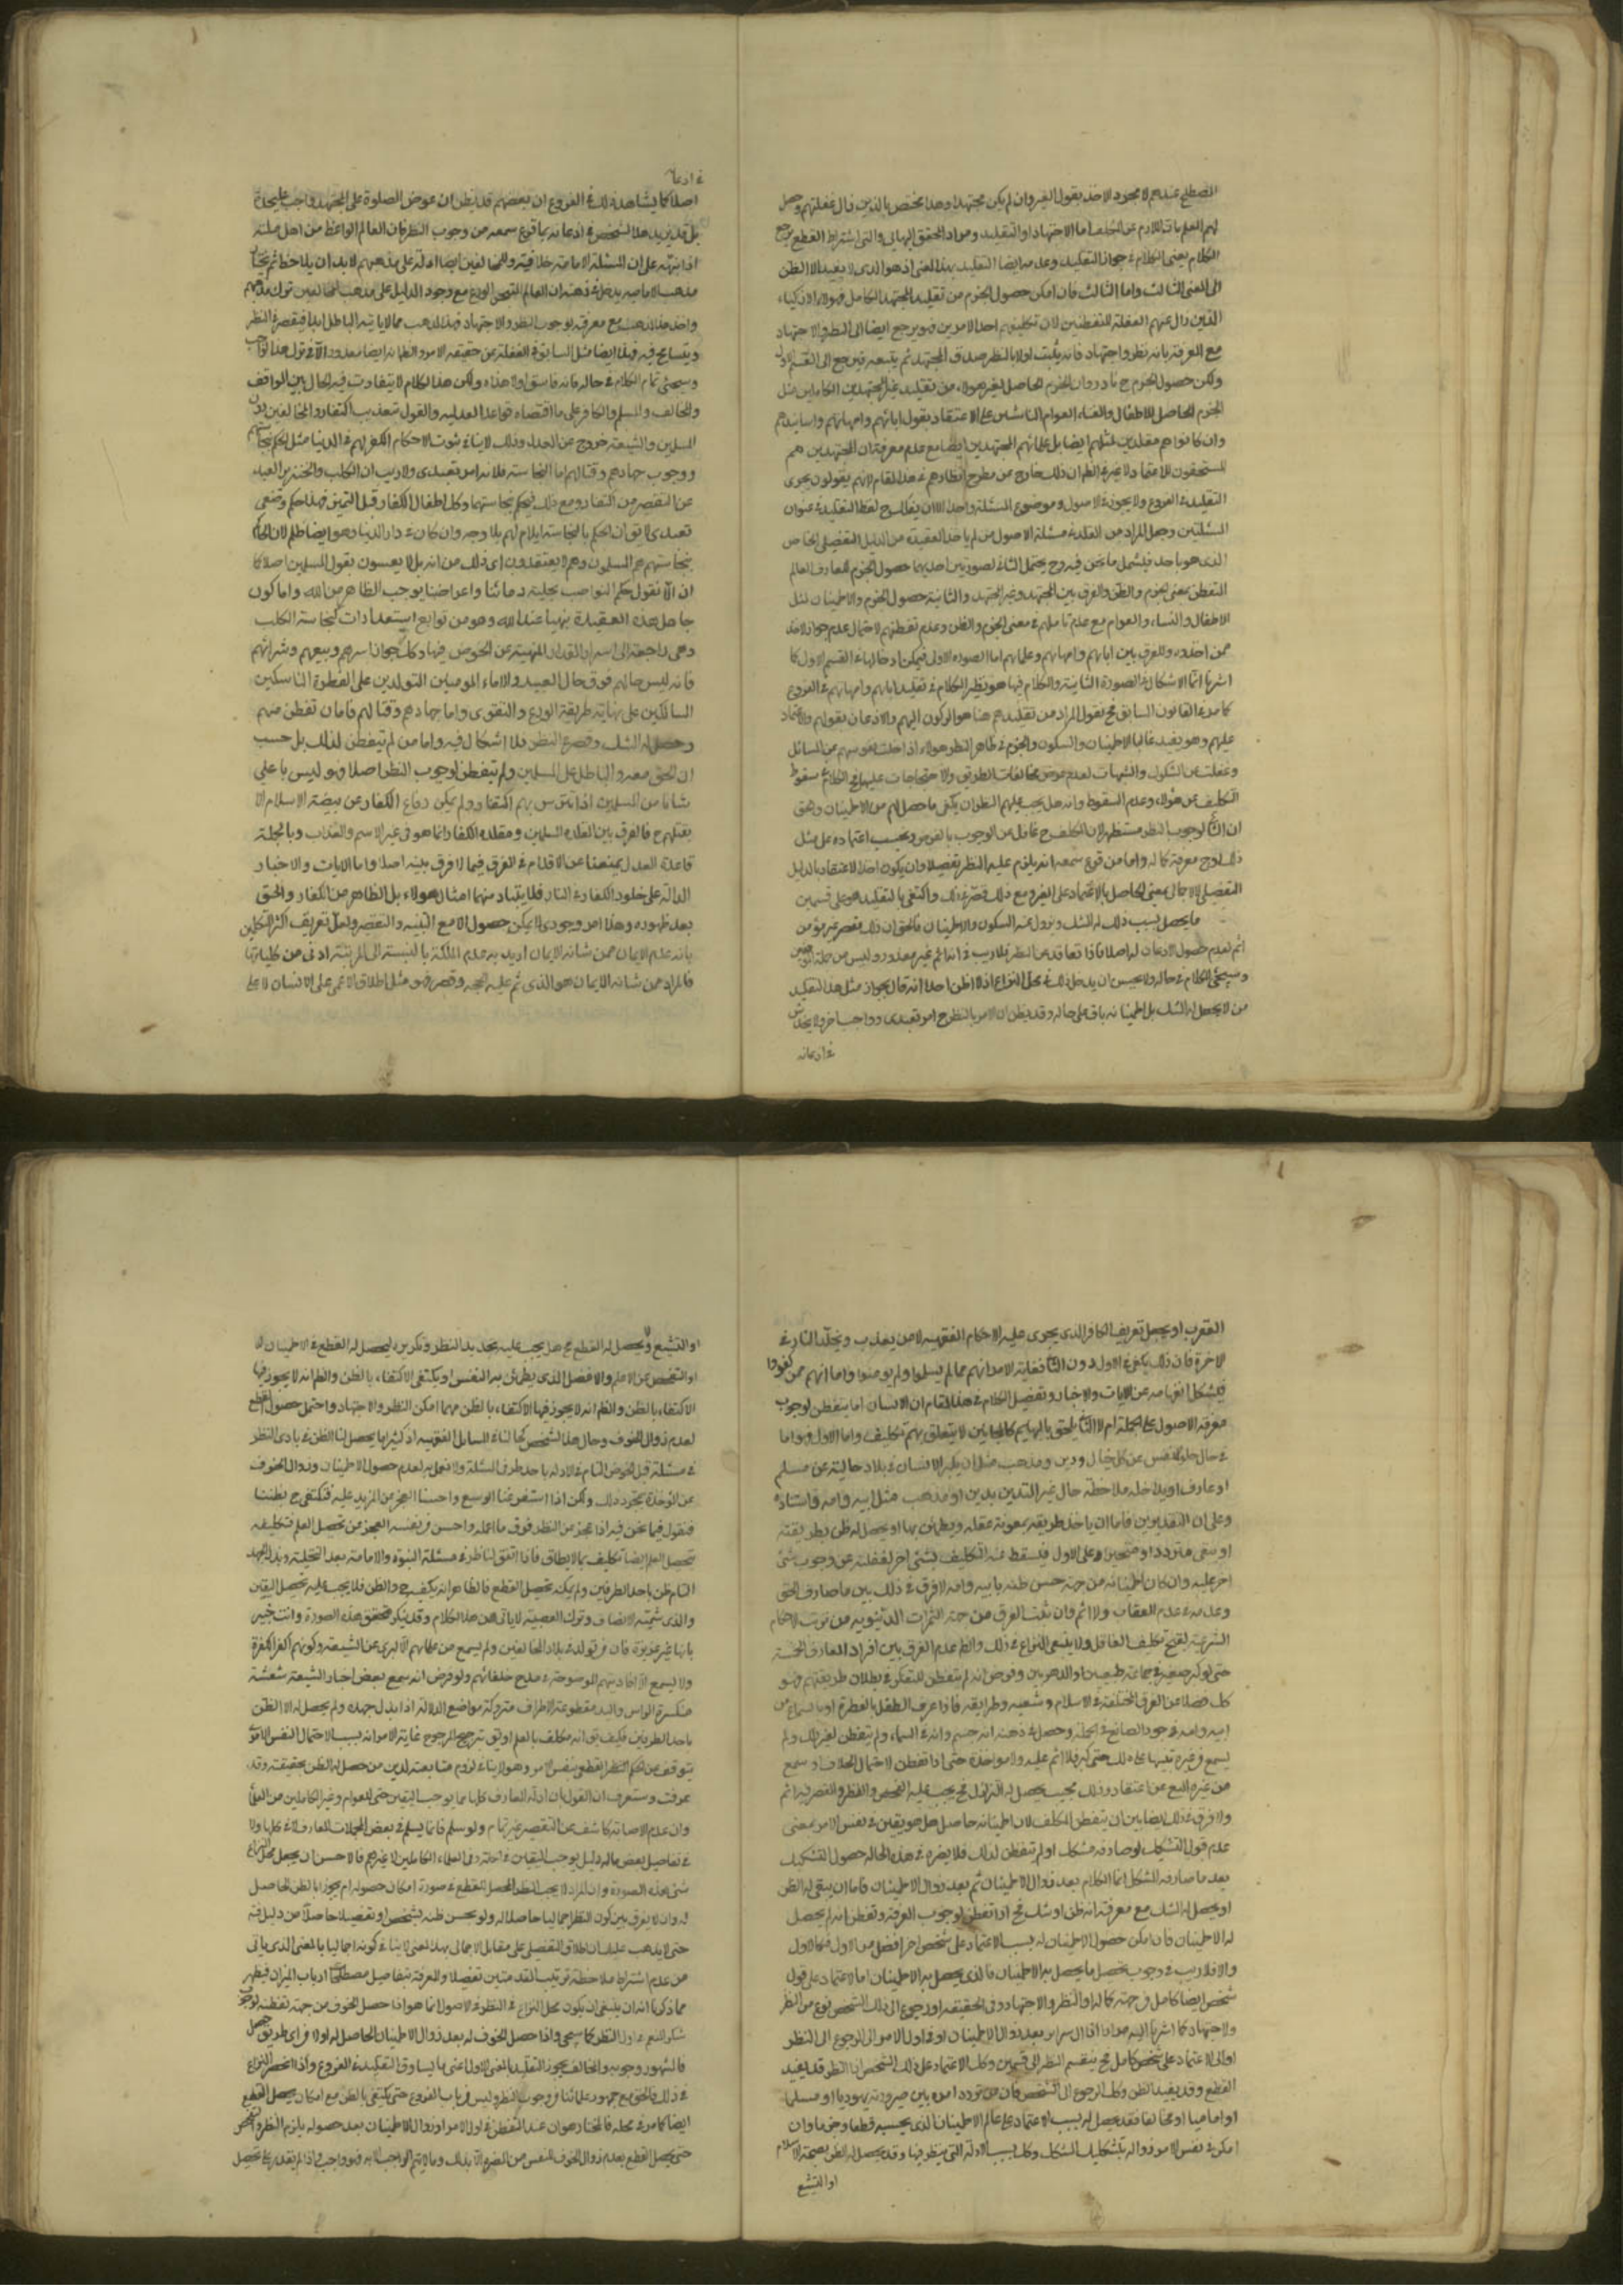 المصطلح عندهم لا مجرد الاخذ بقول الغير وان لم يكن مجتهدا وهذا يختص بالذين زال غفلتهم وحصل
لهم العلم بان اللازم عن المكلف اما الاجتهاد او التقليد ومراد المحقق البهائي والتي اشتراط القطع يرجع
الكلام يعني الكلام في جواز التقليد وعدمه ايضا التقليد بهذا المعنى اذ هو الذي لا يفيد الا الظن
الى المعنى الثالث واما الثالث فان امكن حصول الجزم من تقليد المجتهد الكامل فهؤلاء الاذكياء
الذين زال عنهم الغفلة للتفطنين لان تكليفهم احد الامرين فهو يرجع ايضا الى النظر والاجتهاد
مع المعرفة بانه نظر واجتهاد فانه يثبت اولا بالنظر صدق المجتهد ثم يتبعه فيرجع الى القسم الاول
ولكن حصول الجزم ح نادر وان الجزم الحاصل لغير هؤلاء من تقليد غير المجتهدين الكاملين مثل
الجزم الحاصل للاطفال والنساء العوام الناشئين على الاعتقاد بقول ابائهم وامهاتهم واساتيدهم
وان كانوا هم مقلدين لمثلهم ايضا بل علمائهم المجتهدين ايضا مع عدم معرفة ان المجتهدين هم
المستحقون للاعتماد ولا غير فالظ ان ذلك خارج من مطرح انظارهم في هذا المقام لانهم يقولون يجري
التقليد في الفروع ولا يجوز في الاصول وموضوع المسئلة واحد الا ان يقال بسوح لفظ التقليد في عنوان
المسئلتين وجعل المراد من التقليد في مسئلة الاصول من لم ياخذ العقيدة من الدليل التفصيلي الخاص
الذي هو ياخذ فيشمل ما نحن فيه وح يحتمل الثاني لصورتين احديهما حصول الجزم للعارف العالم
المتفطن بمعنى الجزم والظن والفرق بين المجتهد وغير المجتهد والثانية حصول الجزم والاطمينان لمثل
الاطفال والنساء والعوام مع عدم تاملهم في معنى الجزم والظن وعدم تفطنهم لاحتمال عدم جواز الاخذ
عمن اخذوه والفرق بين ابائهم وامهاتهم وعلمائهم اما الصورة الاولى فيمكن ادخالها في القسم الاول كما
اشرنا انما الاشكال في الصورة الثانية والكلام فيها هو نظير الكلام في تقليد ابائهم وامهاتهم في الفروع
كما مر في القانون السابق فح نقول المراد من تقليدهم هنا هو الركون اليهم والاذعان بقولهم والاعتماد
عليهم وهو يفيد غالبا الاطمينان والسكون والجزم في ظاهر النظر هؤلاء اذا خلت نفوسهم عن المسائل
وغفلت عن الشكوك والشبهات لعدم عروض مخالفات الطريق والاحتجاجات عليها فح الكلام في سقوط
التكليف عن هؤلاء وعدم السقوط وانه هل يجب عليهم النظر ان يكفى ما حصل لهم من الاطمينان وهو
ان النافي لوجوب النظر مستظهر لان المكلف ح غافل عن الوجوب بالفرض ويحسب اعتماده على مثل
ذلك اوج معرفة كماله واما من قرع سمعه انه يلزم عليه النظر تفصيلا وان يكون اخذ الاعتقاد بالدليل
التفصيلي لا الاجمالي يعني الحاصل بالاعتماد على الغير ومع ذلك قصر في ذلك واكتفى بالتقليد هو على قسمين
ما يحصل بسبب ذلك له الشك ويزول عنه السكون والاطمينان فالحق ان ذلك مقصر غير مؤمن
اثم لعدم حصول الاذعان له اصلا فاذا تقاعد عن النظر فلا ريب في انه اثم غير معذور وليس من جملة المؤمنين
وسيجئ الكلام في حاله ولا يحسن ان يدخل ذلك في محل النزاع اذ لا اظن احدا انه قال بجواز مثل هذا التقليد
من لا يحصل له الشك بل اطمينانه باق على حاله وقد يظن ان الامر بالنظر ح امر تعبدي وواجب اخر ولا يخدش
في اذعانه
اصلا كما يشاهد ذلك في الفروع ان بعضهم قد يظن ان عوض الصلوة على المجتهد واجب عليحدة
بل قد يزيد هذا الشخص في اذعانه بما قرع سمعه من وجوب النظر فان العالم الواعظ من اهل ملته
اذا نبهه على ان المسئلة الامامة خلافية وللمخالفين ايضا ادلة على مذهبهم لا بد ان يلاحظ ثم يختار
مذهب الامامية يدخل في ذهنه ان العالم المتدين الورع مع وجود الدليل على مذهب المخالفين ترك مذهبهم
واخذ هذا المذهب مع معرفته لوجوب النظر والاجتهاد فهذا المذهب مما لا ياتيه الباطل ابدا فيقصر في النظر
ويتسامح فيه فهذا ايضا مثل السابق في الغفلة عن حقيقة الامر والظ انه ايضا معذور الا في ترك هذا الواجب
وسيجئ تمام الكلام في حاله فانه فاسق او لا هذا ولكن هذا الكلام لا يتفاوت فيه الحال بين الواقف
والمخالف والمسلم والكافر على ما اقتضاه قواعد العدلية والقول بتعذيب الكفار والمخالفين دون
المسلمين والشيعة خروج عن العدل وذلك لا ينافي ثبوت الاحكام الكفر لهم في الدنيا مثل الحكم بنجاستهم
ووجوب جهادهم وقتالهم اما النجاسة فلانه امر تعبدي ولا ريب ان الكلب والخنزير مبراء
عن التقصير من الكفار ومع ذلك فيحكم بنجاستهما وكل اطفال الكفار قبل التميز فهذا حكم وضعي
تعبدي لا يق ان الحكم بالنجاسة ايلام لهم بلا وجه وان كان في دار الدنيا وهو ايضا ظلم لان الحاكم
بنجاستهم هم المسلمون وهم لا يعتقدون اي ذلك من انه بل لا يعبئون بقول المسلمين اصلا كما
ان الآن نقول حكم النواصب بحلية دمائنا واعراضنا يوجب الظاهر من الله واما كون
جاهل هذه العقيدة نجسا عند الله وهو من توابع استعدادات كنجاسة الكلب
وهي راجعة الى اسرار القدر المنهية عن الخوض فيها وكك جواز اسرهم وبيعهم وشرائهم
فانه ليس حالهم فوق حال العبيد والاماء المؤمنين المتولدين على الفطرة الناسكين
السالكين على نهاية طريقة الورع والتقوى واما جهادهم وقتالهم فاما ان تفطن منهم
وحصل له الشك وقصر في النظر فلا اشكال فيه واما من لم يتفطن لذلك بل حسب
ان الحق معه والباطل على المسلمين ولم يتفطن لوجوب النظر اصلا فهو ليس باعلى
شانا من المسلمين اذا تترس بهم الكفار ولم يمكن دفاع الكفار عن بيضة الاسلام الا
بقتلهم ح فالفرق بين مقلدة المسلمين ومقلدة الكفار انما هو في غير الاسم والعذاب وبالجملة
قاعدة العدل يمنعنا عن الاقدام في الفرق فيما لا فرق بينه اصلا واما الايات والاخبار
الدالة على خلود الكفار في النار فلا يتبادر منهما امثال هؤلاء بل الظاهر من الكفار والحق
بعد ظهوره وهذا امر وجودي لا يمكن حصول الا مع التنبيه والتقصير ولعل تعريف اكثر المتكلمين
بانه عدم الايمان عمن شانه الايمان اريد به عدم الملكة بالنسبة الى المرتبة ادنى من كلياتها
فالمراد ممن شانه الايمان هو الذي تم عليه الحجة وقصر فهو مثل اطلاق الاعمى على الانسان لا على
العقرب او يجعل تعريف الكافر الذي يجري عليه الاحكام الفقهية لا من يعذب ويخلد النار في
الاخرة فان ذلك يكفي في الاول دون الثاني فغاية الامر انهم مما لم يسلموا ولم يؤمنوا واما انهم ممن كفروا
فيشكل انفهامه عن الايات والاخبار وتفصيل الكلام في هذا المقام ان الانسان اما يتفطن لوجوب
معرفة الاصول على الجملة ام لا الثاني يلحق بالبهايم كالمجانين لا يتعلق بهم تكليف واما الاول فهو اما
في حال خلو النفس عن كل خيال ودين ومذهب مثل ان يكبر الانسان في بلاد خالية عن مسلم
او عارف او يداخله ملاحظة حال غير التدين بدين او مذهب مثل ابيه وامه واستاده
وعلى ان التقديرين فاما ان ياخذ طريقة بمعونة عقله ويطمئن بها او يحصل له ظن بطريقته
او يبقى مترددا او متحيرا وعلى الاول فيسقط عنه التكليف بشئ اخر لغفلته عن وجوب شئ
اخر عليه وان كان اطمئنانه من جهة حسن ظنه بابيه وامه لا فرق في ذلك بين ما صادف الحق
وعدمه في عدم العقاب والاثم وان ثبت الفرق من جهة الثمرات الدنيوية من ترتب الاحكام
الشرعية لقبح تكليف الغافل ولا ينبغي النزاع في ذلك والظ عدم الفرق بين افراد المعارف الخمسة
حتى لو كبر صغير في جماعة طبيعيين او الدهريين وفرض انه لم يتفطن للتفكر في بطلان طريقتهم فهو
كك فضلا عن الفرق المختلفة في الاسلام وشعبه وطرايقه فاذا عرف الطفل بالفطرة او بالسماع من
ابيه وامه وجود الصانع في الجملة وحصل في ذهنه انه جسم وانه في السماء ولم يتفطن لغير ذلك ولم
يسمع من غيره تنبيها على ذلك حتى كبر فلا اثم عليه ولا مؤاخذة حتى اذا تفطن لاحتمال الخلاف او سمع
من غيره المنع عن اعتقاد وذلك بحيث يحصل له التزلزل فح يجب عليه الفحص والنظر والمقصر فيه اثم
ولا فرق في ذلك ايضا بين ان يتفطن المكلف لان اطمئنانه حاصل هل هو يقين في نفس الامر بمعنى
عدم قبول التشكيك لو صادفه مشكك او لم يتفطن لذلك فلا يضره في هذه الحالة حصول التشكيك
بعد ما صادفه المشكك انما الكلام بعد زوال الاطمينان ثم بعد زوال الاطمينان فاما ان يبقى له الظن
او يحصل له الشك مع معرفة انه ظن او شك فح اذا تفطن لوجوب المعرفة وتفطن انه لم يحصل
له الاطمينان فان امكن حصول الاطمينان له بسبب الاعتماد على شخص اخر افضل من الاول فكالاول
والا فلا ريب في وجوب تحصيل ما يحصل به الاطمينان فالذي يحصل به الاطمينان اما الاعتماد على قول
شخص ايضا كامل في جهة كماله او النظر والاجتهاد وفي الحقيقة الرجوع الى ذلك الشخص نوع من النظر
والاجتهاد كما اشرنا اليه مرارا اذ المراد بعد زوال الاطمينان اوفى اول الامر الى الرجوع الى النظر
او الى الاعتماد على شخص كامل فح ينقسم النظر الى قسمين وكك الاعتماد على ذلك الشخص اذ النظر قد يفيد
القطع وقد يفيد الظن وكك الرجوع الى الشخص فان من تردد امره بين صيرورته يهوديا او مسلما
او اماميا او مخالفا فقد يحصل له بسبب الاعتماد على عالم الاطمينان الذي يحسبه قطعا وجزما وان
امكن في نفس الامر زواله بتشكيك المشكك وكك بسبب الادلة التي ينظر فيها وقد يحصل له الظن بصحة الاسلام
او التشيع
او التشيع ولا يحصل له القطع فح هل يجب عليه تجديد النظر وتكريره ليحصل له القطع في الاطمينان ام
او الفحص عن الاعلم والافضل الذي يطمئن به النفس او يكتفى الاكتفاء بالظن والظ انه لا يجوز فيها
الاكتفاء بالظن والظ انه لا يجوز فيها الاكتفاء بالظن مهما امكن النظر والاجتهاد واحتمل حصول القطع
لعدم زوال الخوف وحال هذا الشخص كحالنا في المسايل الفقهية اذ كثيرا ما يحصل لنا الظن في بادي النظر
في مسئلة قبل الخوض التام في الادلة باحد طرفي المسئلة ولا نعمل به لعدم حصول الاطمينان وزوال الخوف
عن المؤاخذة بمجرد ذلك ولكن اذا استفرغنا الوسع واحسنا العجز من المزيد عليه فنكتفي ح بظننا
فنقول فيما نحن فيه اذا عجز عن النظر فوق ما اعمله واحس في نفسه العجز من تحصيل العلم فتكليفه
بتحصيل العلم ايضا تكليف بما لا يطاق فاذا اتفق لناظر في مسئلة النبوة والامامة بعد التخلية وبذل الجهد
التام ظن باحد الطرفين ولم يمكنه تحصيل القطع فالظاهر انه يكفيه ح والظن فلا يجب عليه تحصيل اليقين
والذي شيمته الانصاف وترك العصبية لا يابى عن هذا الكلام وقد ينكر تحقق هذه الصورة وانت خبير
بانها غير عزيزة فان من تولد في بلاد المخالفين ولم يسمع من علمائهم الا التبري عن الشيعة وكونهم اكفر الكفرة
ولا يسمع الا احاديثهم الموضوعة في مدح خلفائهم ولو فرض انه سمع بعض اخبار الشيعة شعشة
منكسرة الراس واليد مقطوعة الاطراف متروكة مواضع الدلالة اذا بذل جهده ولم يحصل له الا الظن
باحد الطرفين فكيف يق انه مكلف بالعلم او يق ترجيح المرجوح غاية الامر انه بسبب الاحتمال النفس الامري
يتوقف عن الحكم النظر القطعي بنفس الامر وهو لا ينافي لزوم متابعة الدين من حصل له الظن بحقيقته وقد
عرفت وستعرف ان القول بان ادلة المعارف كلها مما يوجب اليقين حتى للعوام وغير الكاملين من العلماء
وان عدم الاصابة كاشف عن التقصير غير تمام ولو سلم فانما يسلم في بعض المجملات المعارف لا في كلها ولا
في تفاصيل بعض ماله دليل يوجب اليقين في الجملة وفي العلماء الكاملين لا غيرهم فالاحسن ان يجعل محل النزاع
شئ هذه الصورة وان المراد لا يجب النظر المحصل للقطع في صورة امكان حصوله ام يجوز بالظن الحاصل
له وان لا يفرق بين كون النظر اجماليا حاصلا له ولو بحسن ظنه بشخص او تفصيلا حاصلا من دليل فنه
حتى لا يذهب عليك ان اطلاق التفصيلي على مقابل الاجمالي بهذا المعنى لا ينافي كونه اجماليا بالمعنى الذي ياتي
من عدم اشتراط ملاحظة ترتيب المقدمتين تفصيلا والمعرفة بتفاصيل مصطلحات ارباب الميزان فيظهر
مما ذكرنا انه ان ينبغي ان يكون محل النزاع في النظر في الاصول انما هو اذا حصل الخوف من جهة تفطنه لوجوب
شكر المنعم في اول النظر كما سيجئ واذا حصل الخوف له بعد زوال الاطمينان الحاصل له اولا من اي طريق حصل
فالمشهور وجوبه والمخالف يجوز التقليد بالمعنى الاول اعني ما يساوق التقليد في الفروع واذا انحصر النزاع
في ذلك فالحق مع جمهور علمائنا في وجوب النظر وليس في باب الفروع حتى يكتفي بالظن مع امكان يحصل القطع
ايضا كما مر في محله فالمختار هو ان عند التفطن في اول الامر او زوال الاطمينان بعد حصوله يلزم النظر والفحص
حتى يحصل القطع بعدم زوال الخوف للنفس من الضرر الا بذلك وما لا يتم الواجب الا به فهو واجب نعم اذا لم يقدر على تحصيل